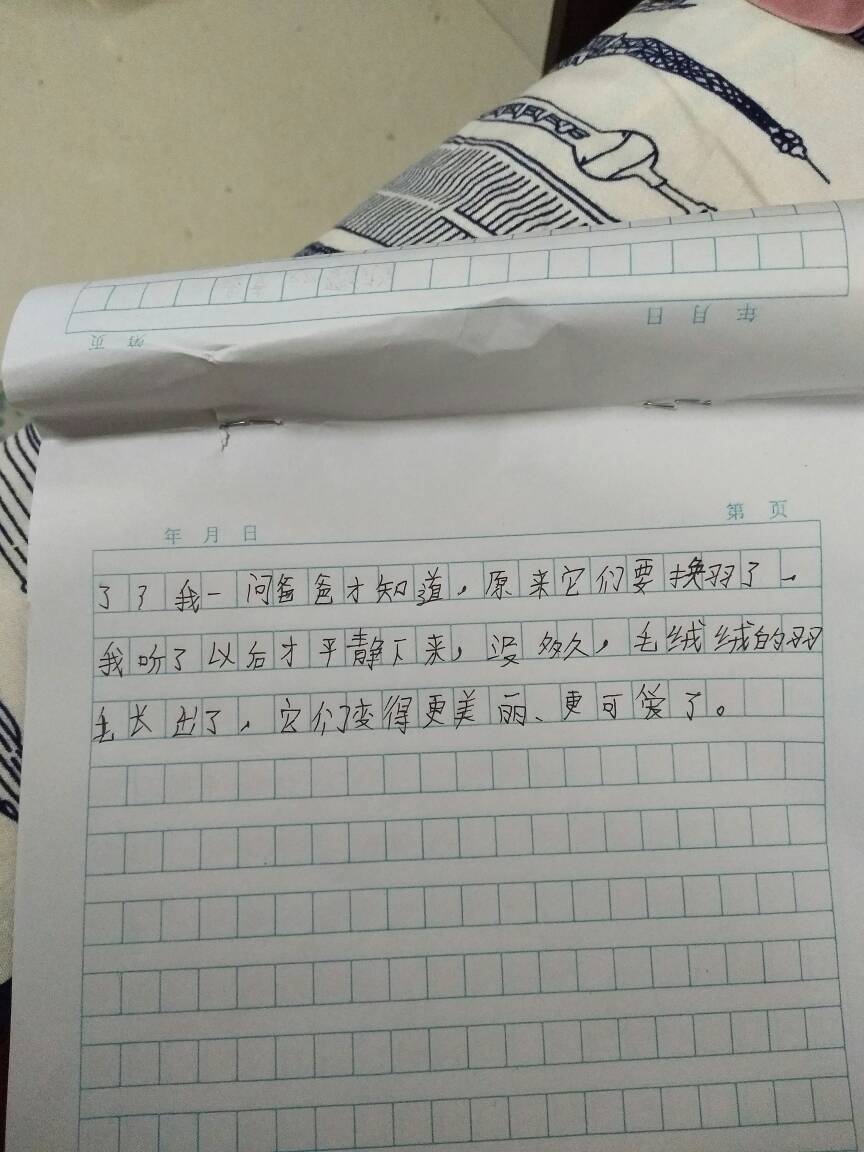 年 月 日
第 页
年 月 日
第 页
了了我一问爸爸才知道，原来它们要换羽了，
我听了以后才平静下来，没多久，毛绒绒的羽
毛长出了，它们变得更美丽、更可爱了。